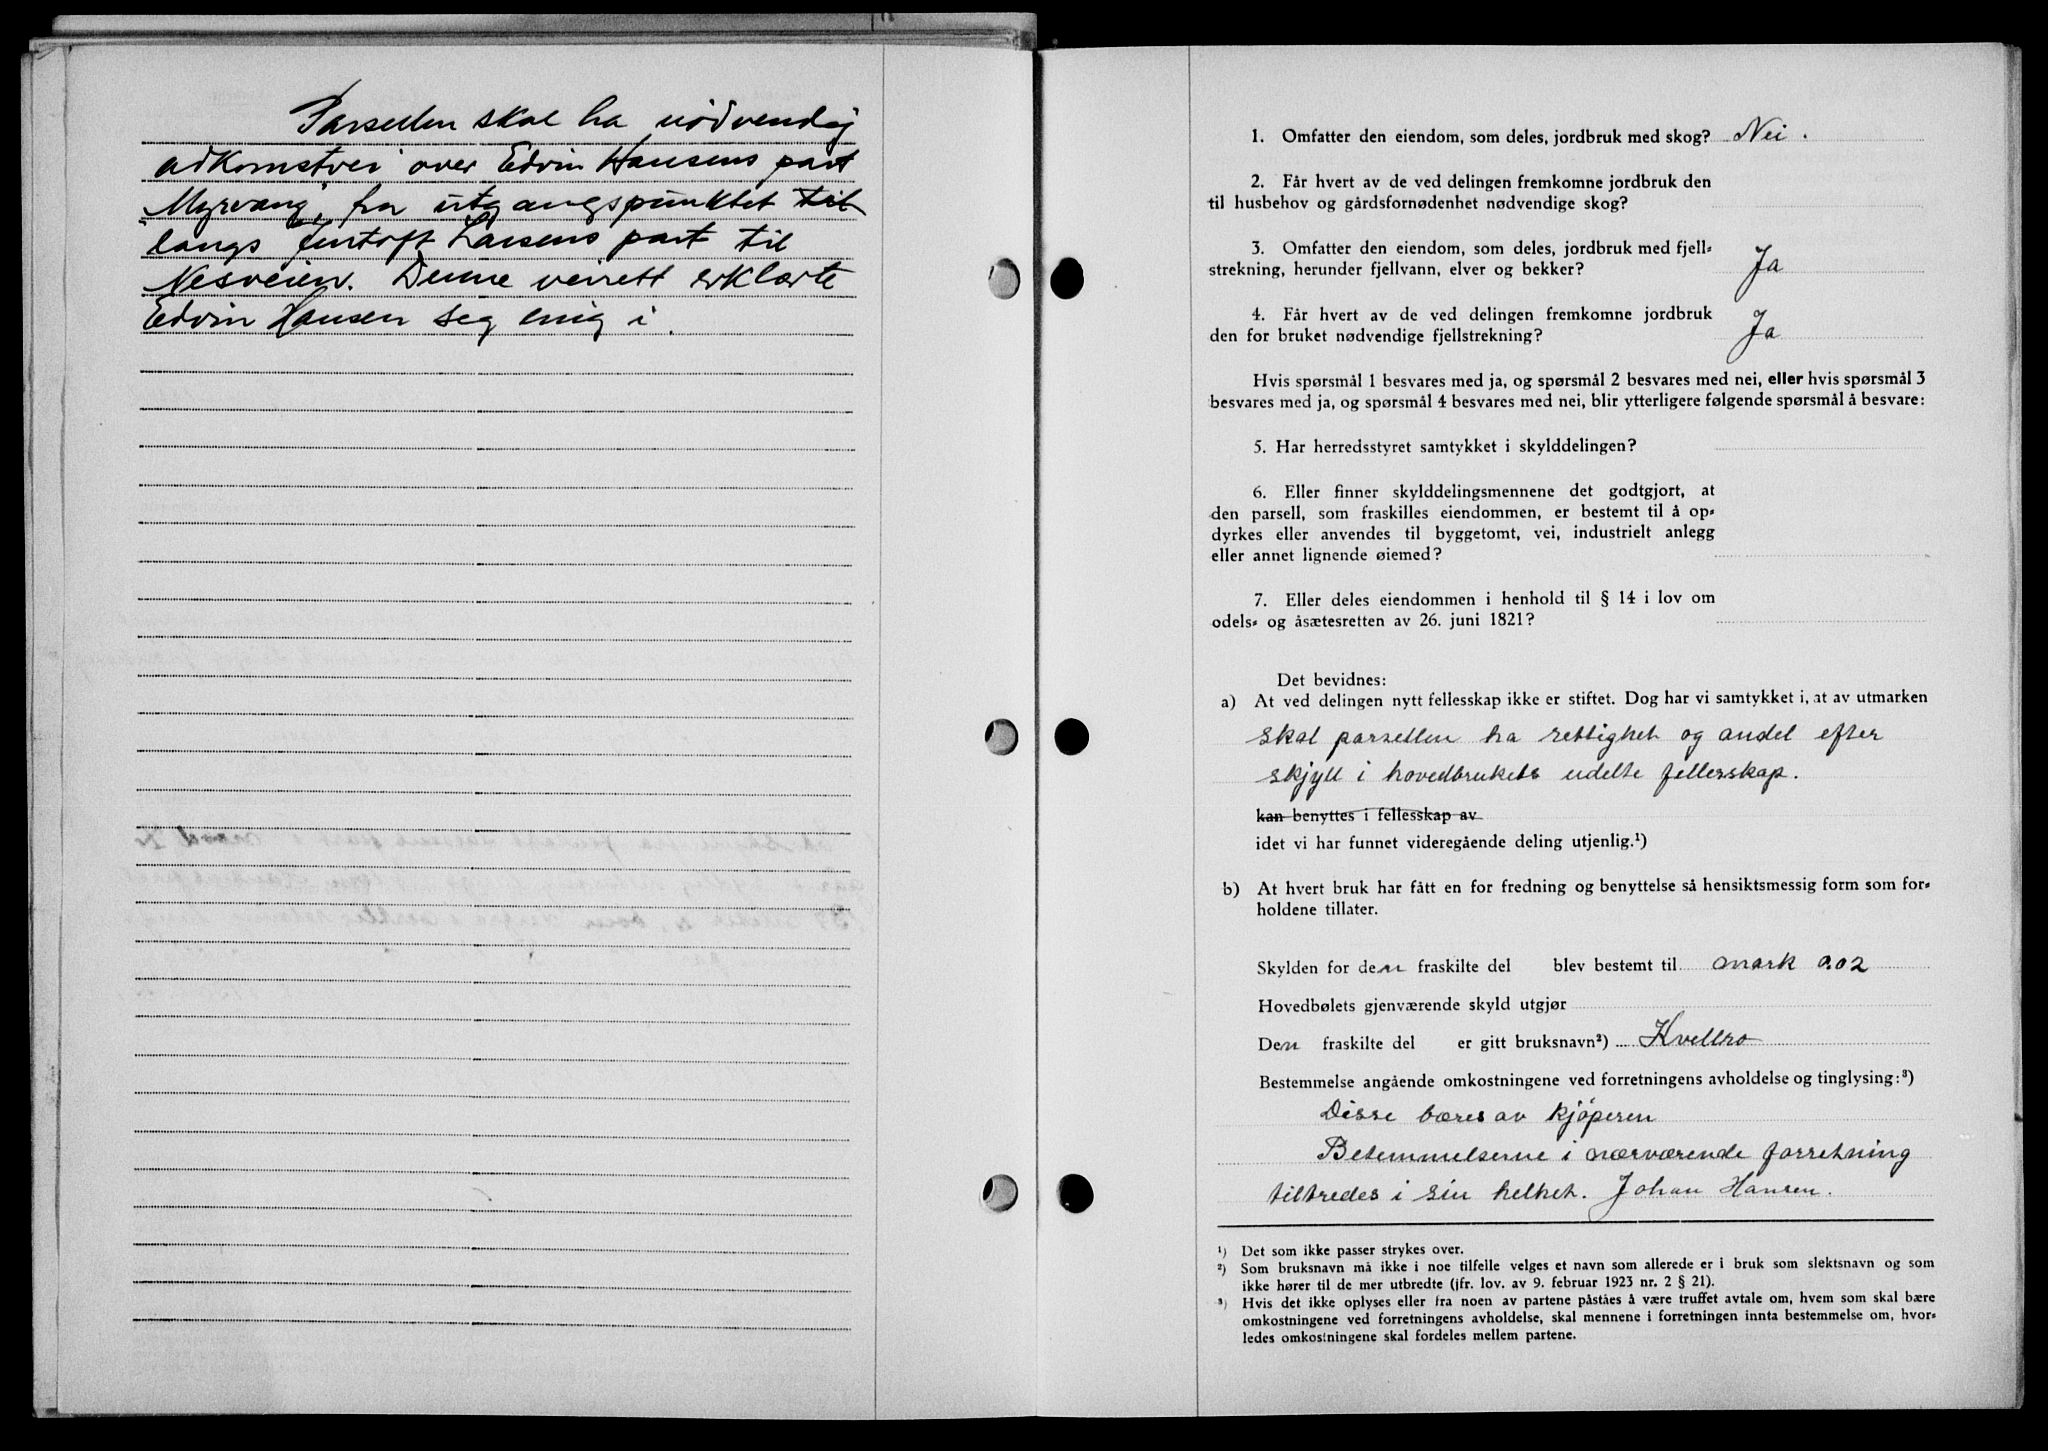 Parsellen skal ha nödvendig
adkomstvei over Edvin Hansens part
"Myrvang", fra utgangspunktet til
langs Jentoft Larsens part til
Nesveien. Denne veirett erklærte
Edvin Hansen seg enig i.
1. Omfatter den eiendom, som deles, jordbruk med skog? Nei.
2. Får hvert av de ved delingen fremkomne jordbruk den
til husbehov og gårdsfornødenhet nødvendige skog?
3. Omfatter den eiendom, som deles, jordbruk med fjell-
strekning, herunder fjellvann, elver og bekker? Ja
4. Får hvert av de ved delingen fremkomne jordbruk
den for bruket nødvendige fjellstrekning? Ja
Hvis spørsmål 1 besvares med ja, og spørsmål 2 besvares med nei, eller hvis spørsmål 3
besvares med ja, og spørsmål 4 besvares med nei, blir ytterligere følgende spørsmål å besvare:
5. Har herredsstyret samtykket i skylddelingen?
6. Eller finner skylddelingsmennene det godtgjort, at
den parsell, som fraskilles eiendommen, er bestemt til å op-
dyrkes eller anvendes til byggetomt, vei, industrielt anlegg
eller annet lignende øiemed?
7. Eller deles eiendommen i henhold til § 14 i lov om
odels- og åsætesretten av 26. juni 1821?
Det bevidnes:
a) At ved delingen nytt fellesskap ikke er stiftet. Dog har vi samtykket i, at av utmarken
skal parsellen ha rettighet og andel efter
skjyll i hovedbrukets udelte fellesskap.
kan benyttes i fellesskap av
idet vi har funnet videregående deling utjenlig.¹)
b) At hvert bruk har fått en for fredning og benyttelse så hensiktsmessig form som for-
holdene tillater.
Skylden for den fraskilte del blev bestemt til mark 0.02
Hovedbølets gjenværende skyld utgjør
Den fraskilte del er gitt bruksnavn²) Kvellro
Bestemmelse angående omkostningene ved forretningens avholdelse og tinglysing:³)
Disse bæres av kjöperen
Betemmelserne i nærværende forretning
tiltredes i sin helhet. Johan Hansen.
¹) Det som ikke passer strykes over.
²) Som bruksnavn må ikke i noe tilfelle velges et navn som allerede er i bruk som slektsnavn og som
ikke hører til de mer utbredte (jfr. lov. av 9. februar 1923 nr. 2 § 21).
³) Hvis det ikke oplyses eller fra noen av partene påståes å være truffet avtale om, hvem som skal bære
omkostningene ved forretningens avholdelse, skal mennene i forretningen innta bestemmelse om, hvor-
ledes omkostningene skal fordeles mellem partene.